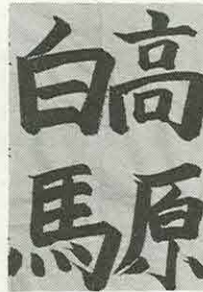 高原
白馬